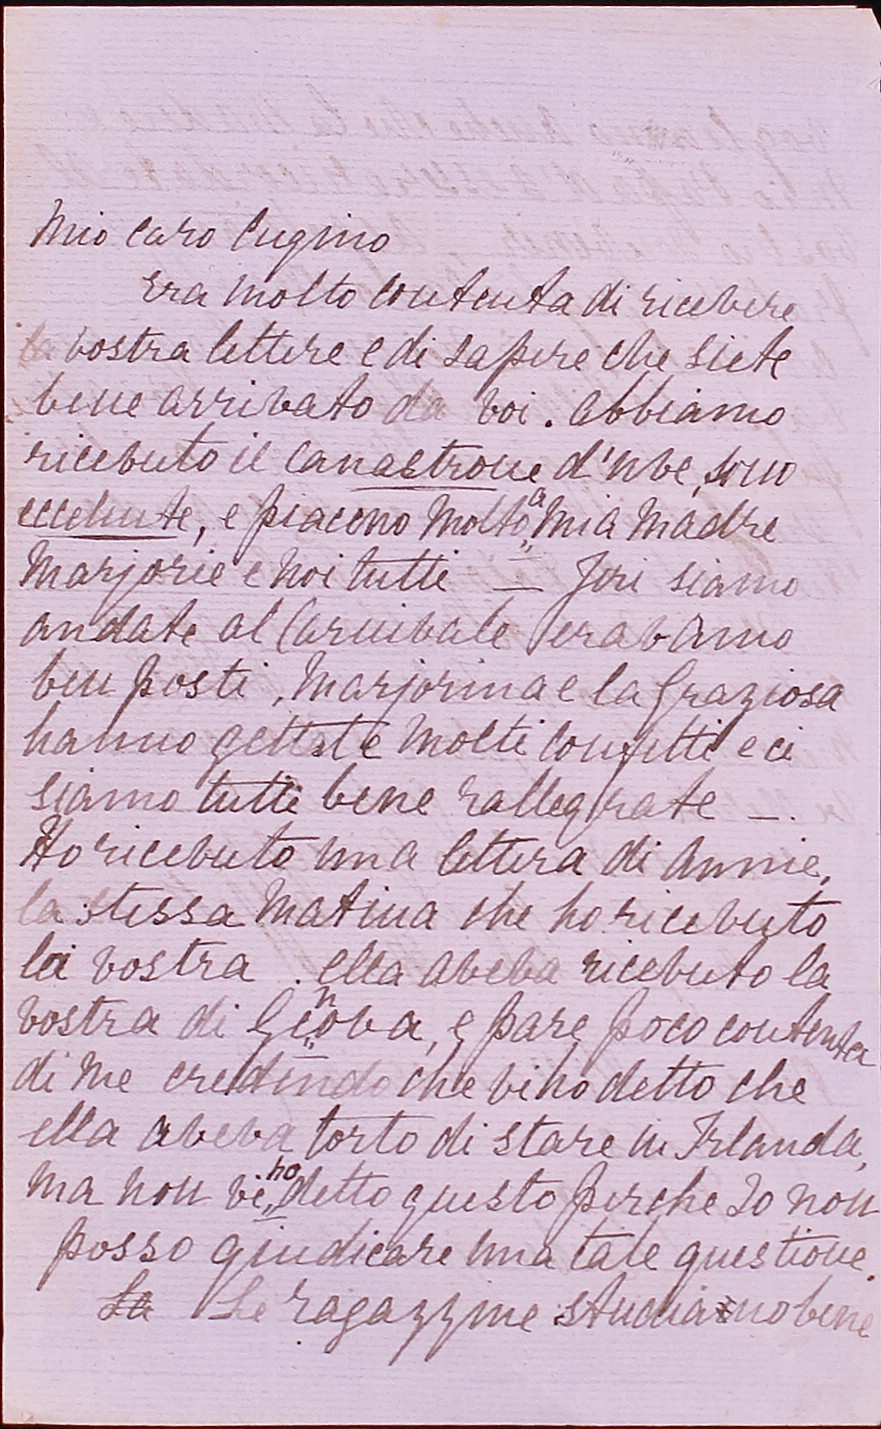 Mio caro Cugino
Era molto contenta di ricevere
la vostra lettere e di sapere che siete
bene arrivato da voi. Abbiamo
ricevuto il canastrone d'uve, sono
eccelente, e piaceno molto a mia madre
Marjorie e noi tutti — Jeri siamo
andate al Carnivale eravamo
ben posti, Marjorina e la Graziosa
hanno gettate molti confetti e ci
siamo tutti bene rallegrate —.
Ho ricevuto una lettera di Annie,
la stessa matina che ho ricevuto
la vostra. Ella aveva ricevuto la
vostra di Genova, e pare poco contenta
di me credendo che vi ho detto che
ella aveva torto di stare in Irlanda,
ma non vi ho detto questo perche Io non
posso giudicare una tale questione.
La Le ragazzine studiano bene